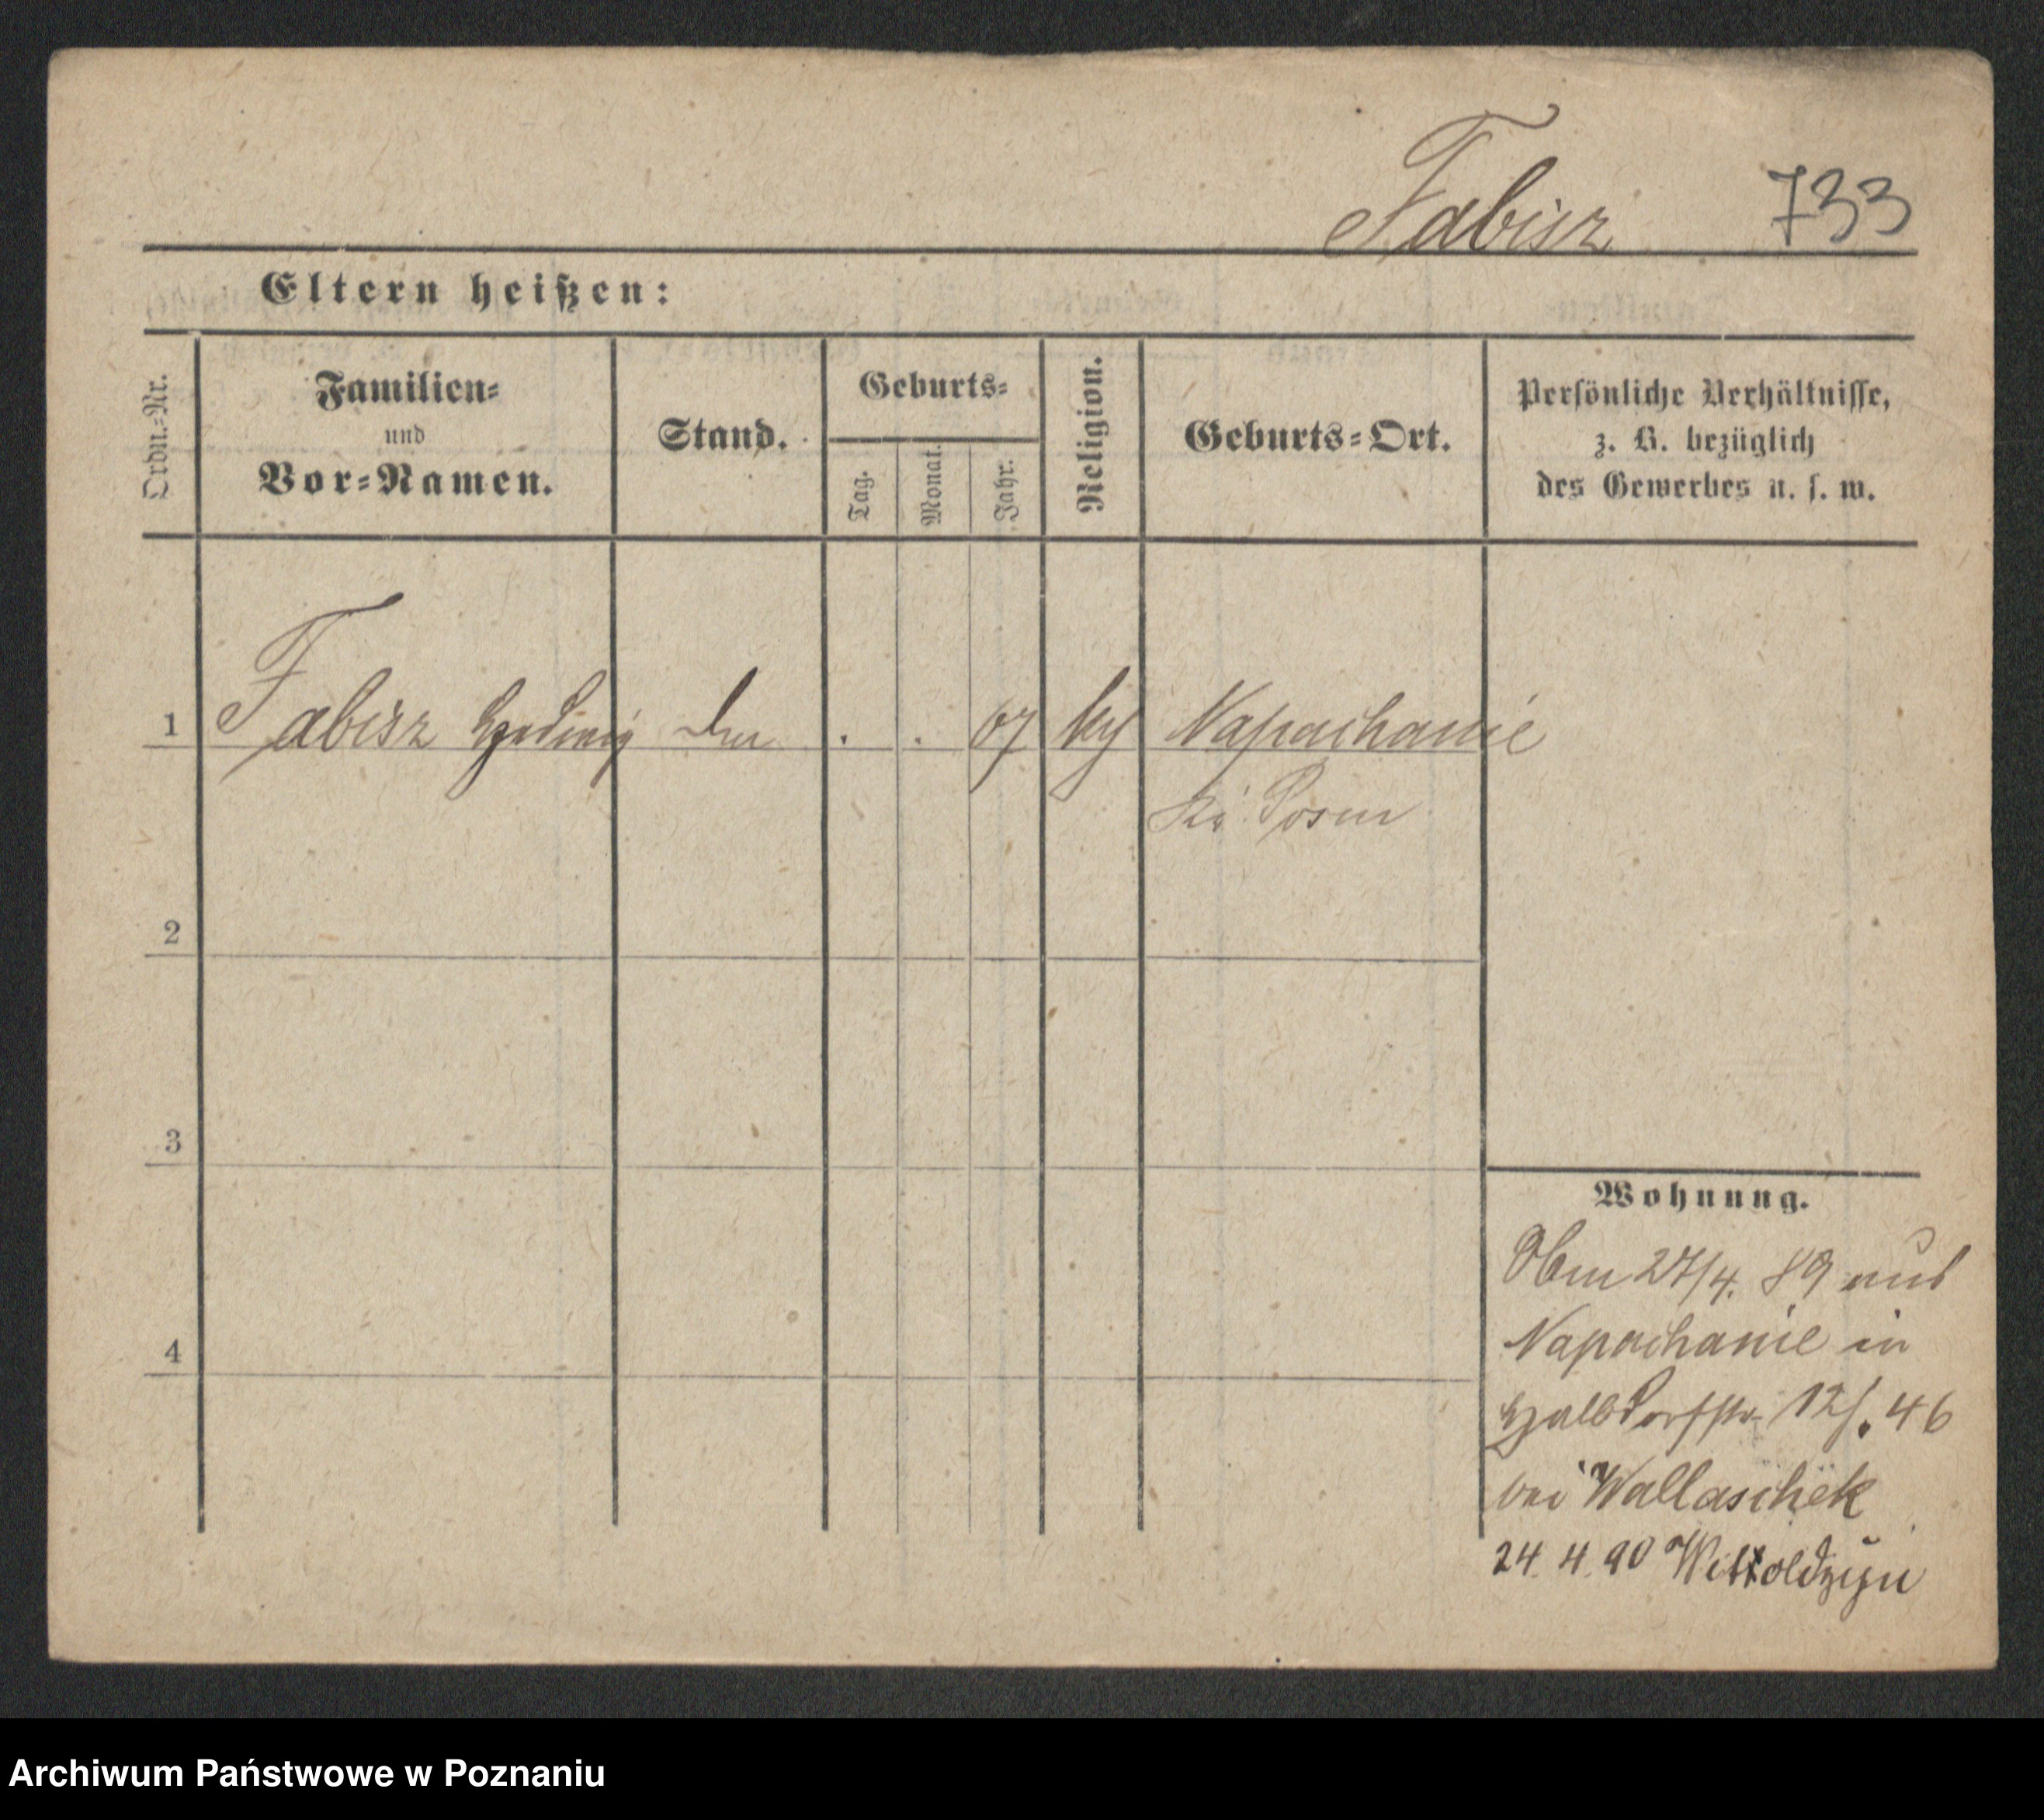 Fabisz 733
Eltern heißen:
Ordn.-Nr.
Familien-
und
Vor-Namen.
Stand.
Geburts-
Tag.
Monat.
Jahr.
Religion.
Geburts-Ort.
Persönliche Verhältnisse,
z. B. bezüglich
des Gewerbes u. s. w.
1 Fabisz Hedwig . . 67 Napachanie
Posen
2
3
4
Wohnung.
27/4. 89 aus
Napachanie in
Halbdorfstr 46
bei Wallaschek
24. 4. 90
Archiwum Państwowe w Poznaniu